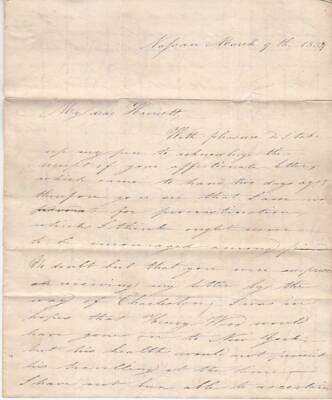 Nassau March 9th. 183
My dear Harriett,
With pleasure do I take
up my pen to acknowledge the
receipt of your affectionate letter,
which came to hand two days ago
therefore you see that I am no
for procrastination,
which I think ought never
to be encouraged among
No doubt but that you were surprised
receiving my letter by the
way of Charleston, I was in
hopes that Henry Wood would
have gone on to New York
but his health would not permit
his travelling at the time
I have not been able to ascertain